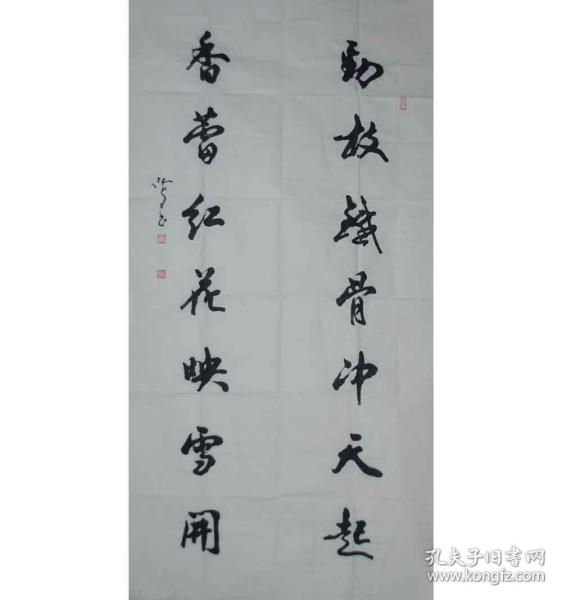 勁枝鐵骨冲天起
香蕾红花映雪開
孔夫子旧书网
www.kongfz.com